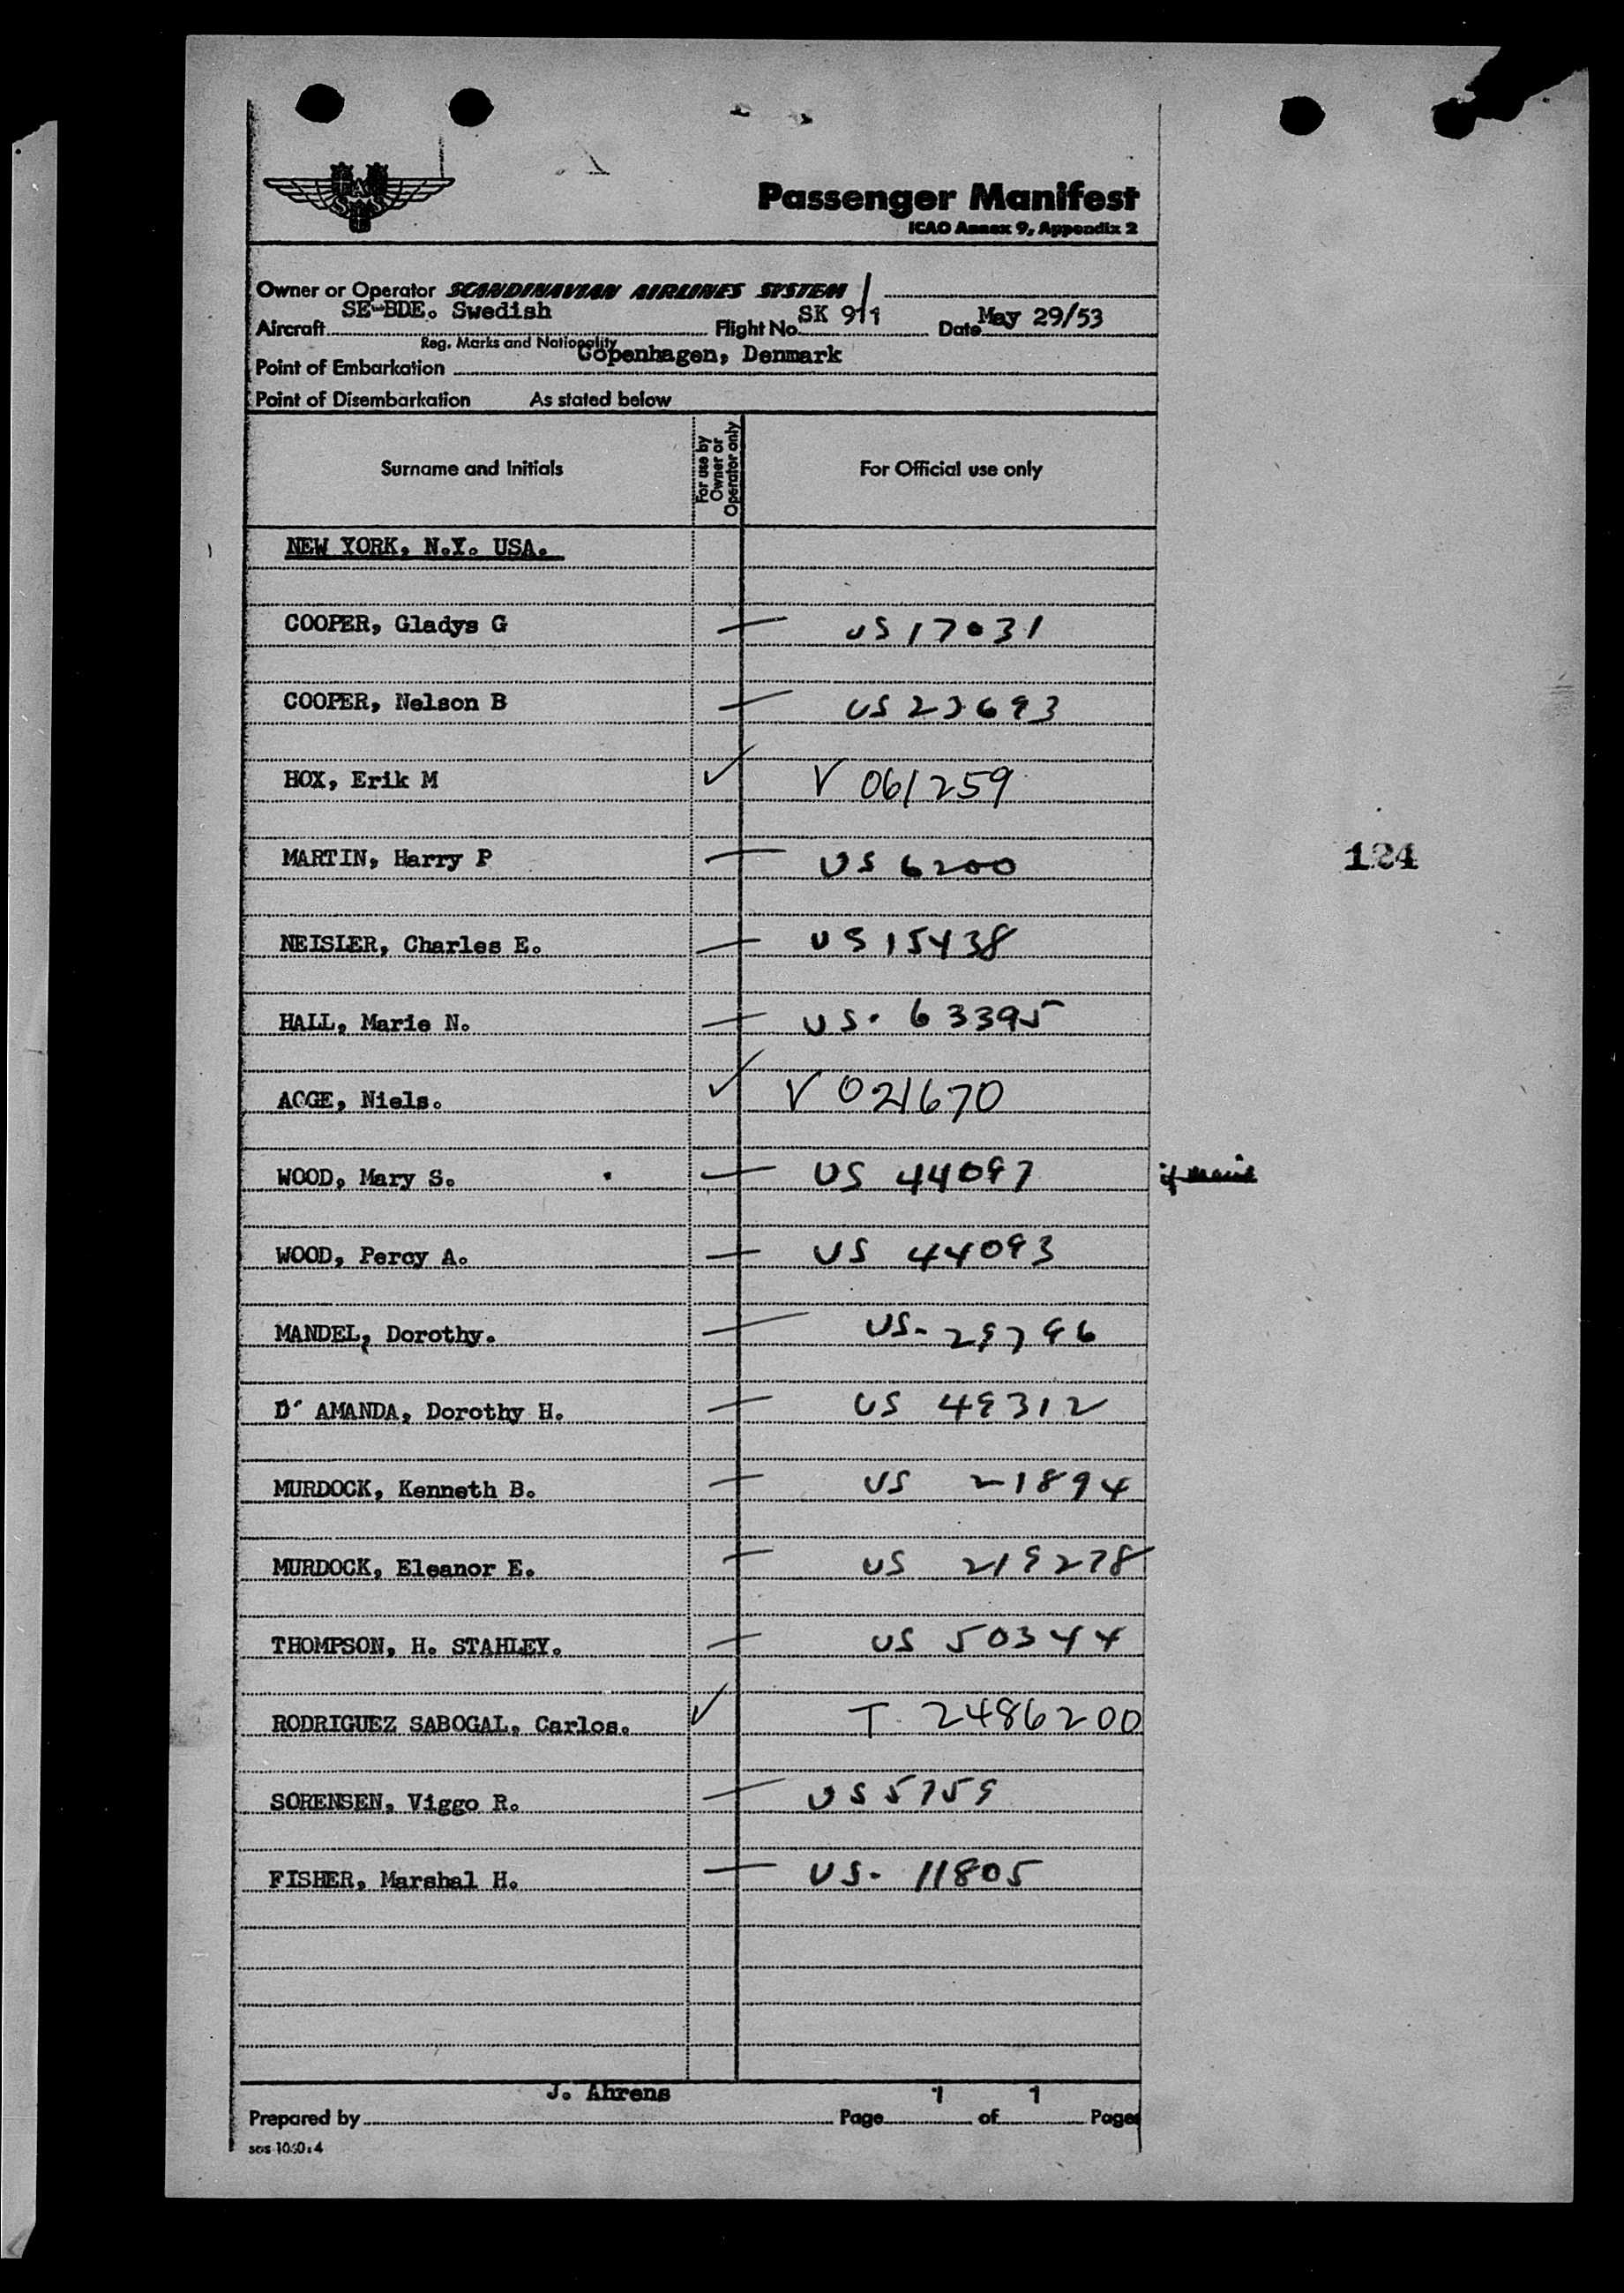 SAS
Passenger Manifest
ICAO Annex 9, Appendix 2
Owner or Operator SCANDINAVIAN AIRLINES SYSTEM
Aircraft SE-BDE. Swedish Flight No. SK 911 Date May 29/53
Reg. Marks and Nationality
Point of Embarkation Copenhagen, Denmark
Point of Disembarkation As stated below
Surname and Initials For use by Owner or Operator only For Official use only
NEW YORK, N.Y. USA.
COOPER, Gladys G — US 17031
COOPER, Nelson B — US 23693
HOX, Erik M ✓ V 061259
MARTIN, Harry P — US 6200
NEISLER, Charles E. — US 15438
HALL, Marie N. — US. 63395
124
ACGE, Niels. ✓ V 021670
WOOD, Mary S. — US 44097
WOOD, Percy A. — US 44093
MANDEL, Dorothy. — US- 29796
D' AMANDA, Dorothy H. — US 49312
MURDOCK, Kenneth B. — US 21894
MURDOCK, Eleanor E. — US 219278
THOMPSON, H. STAHLEY. — US 50344
RODRIGUEZ SABOGAL, Carlos. ✓ T. 2486200
SORENSEN, Viggo R. — US 5759
FISHER, Marshal H. — US. 11805
Prepared by J. Ahrens Page 1 of 1 Pages
sos 1060:4